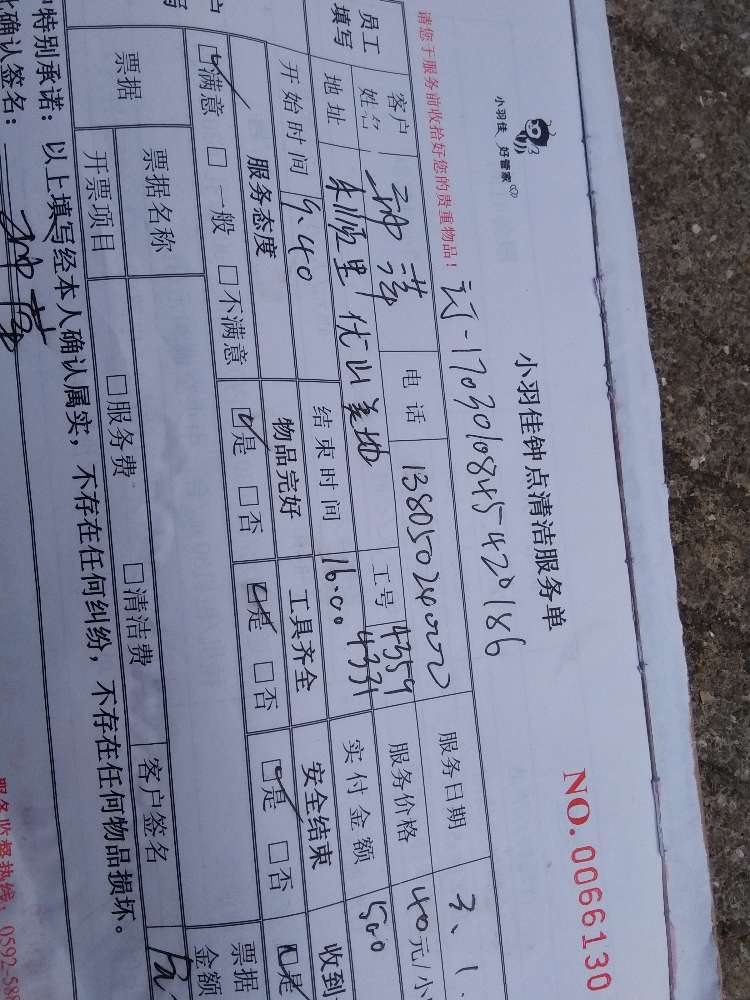 小羽佳 好管家
小羽佳钟点清洁服务单
NO. 0066130
请您于服务前收拾好您的贵重物品！
订-1703010845420186
员工填写
客户姓名 电话 13805024000 服务日期 3、1
地址 优山美地 工号 4359 4331 服务价格 40元/小
开始时间 9.40 结束时间 16:00 实付金额 500
服务态度 物品完好 工具齐全 安全结束 收到
☑满意 □一般 □不满意 ☑是 □否 ☑是 □否 ☑是 □否 ☑是
票据 票据名称 客户签名 票据金额
开票项目 □服务费 □清洁费
特别承诺：以上填写经本人确认属实，不存在任何纠纷，不存在任何物品损坏。
确认签名：
服务监督热线：0592-588